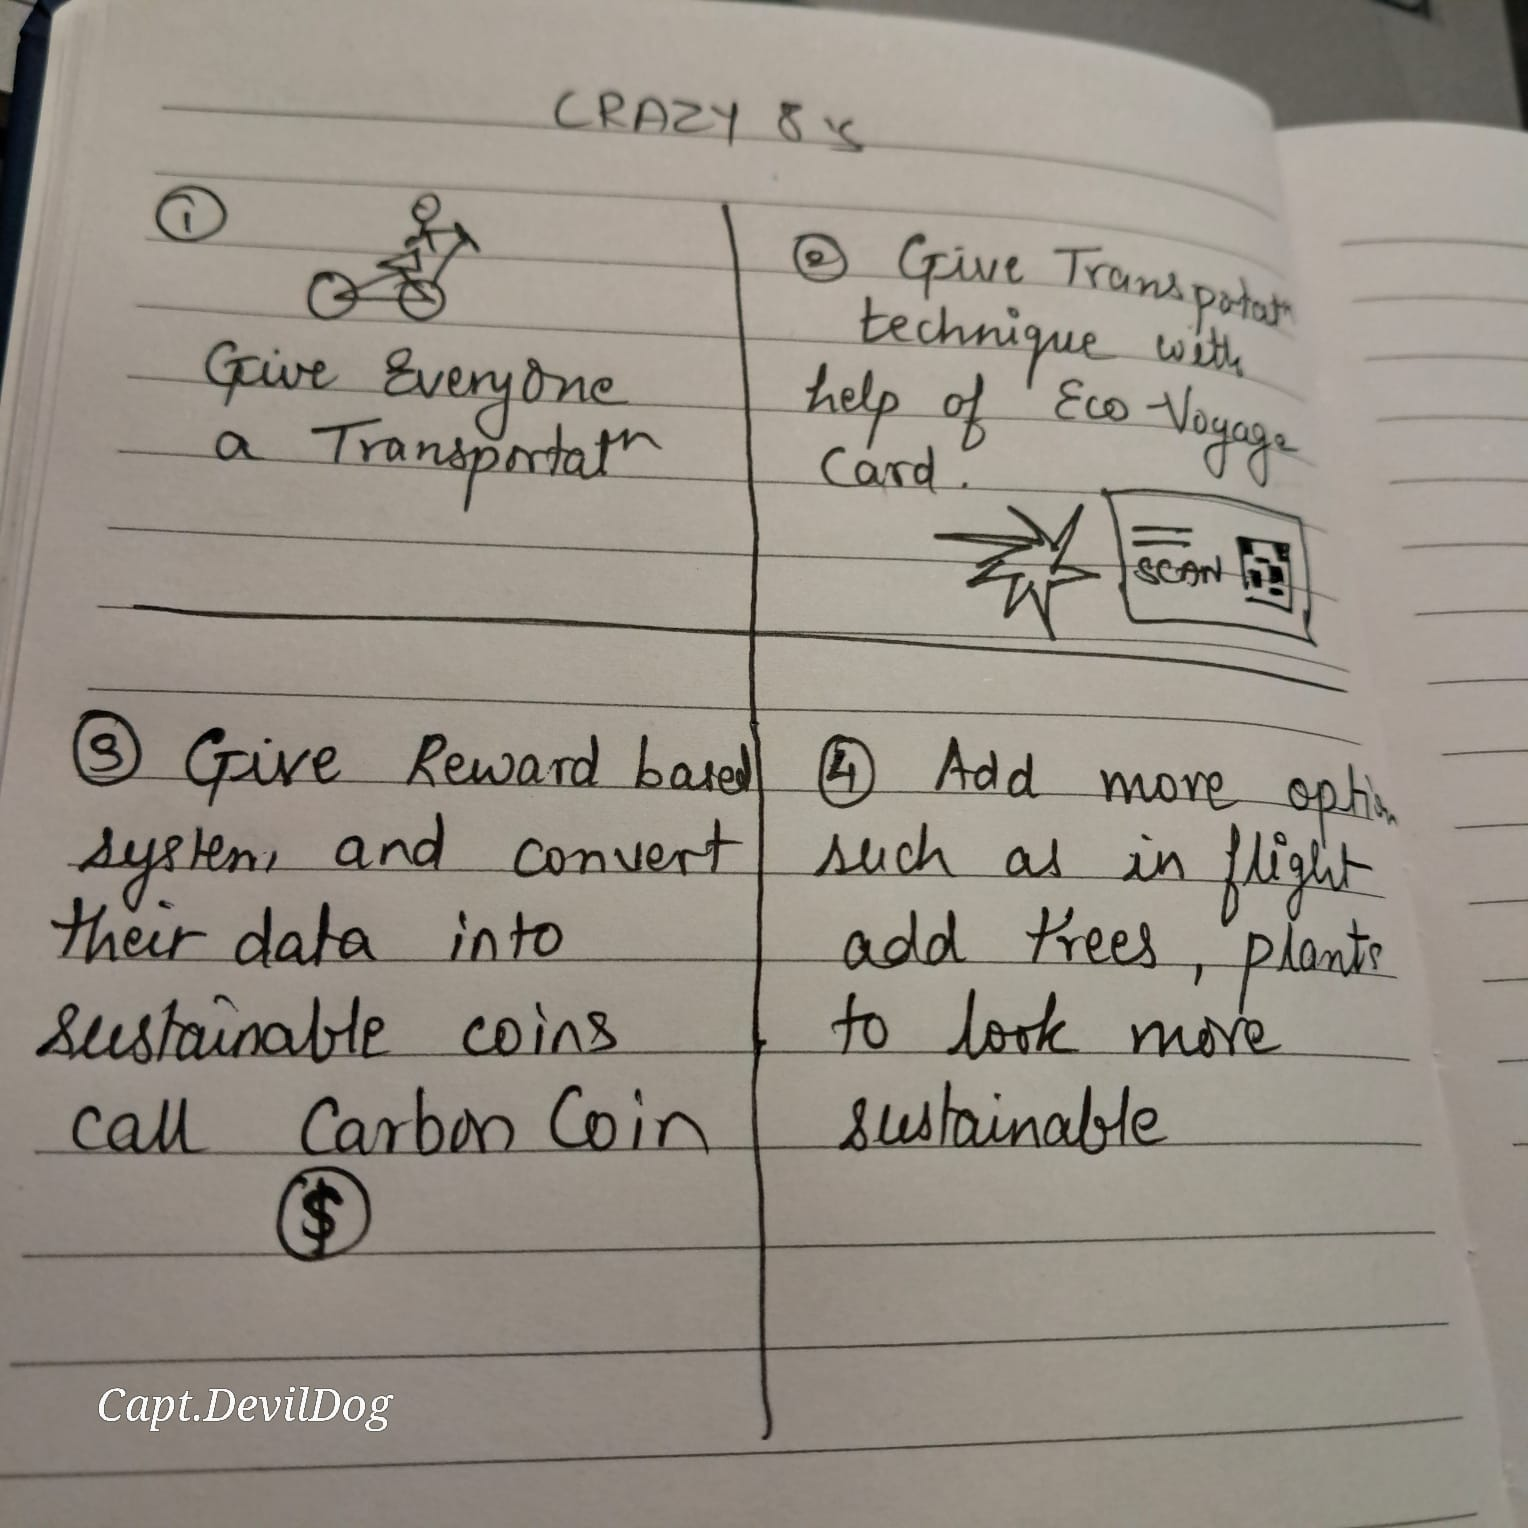 CRAZY 8's
1
Give Everyone
a Transportatn
2 Give Transpotatn
technique with
help of Eco-Voyage
Card.
SCAN
3 Give Reward based
system, and convert
their data into
sustainable coins
call Carbon Coin
$
4 Add more option
such as in flight
add trees, plants
to look more
sustainable
Capt.DevilDog